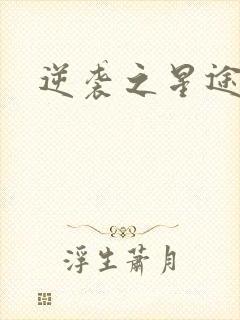 逆袭之星途
浮生萧月